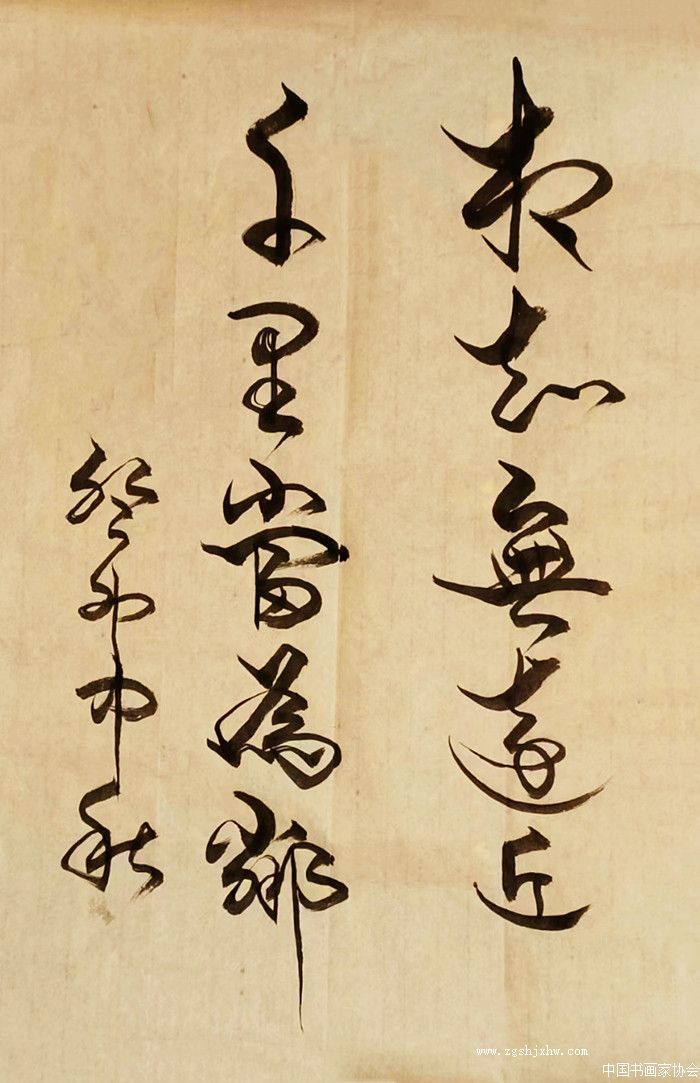 相知無遠近
千里當為鄰
癸卯中秋
www.zgshjxhw.com
中国书画家协会